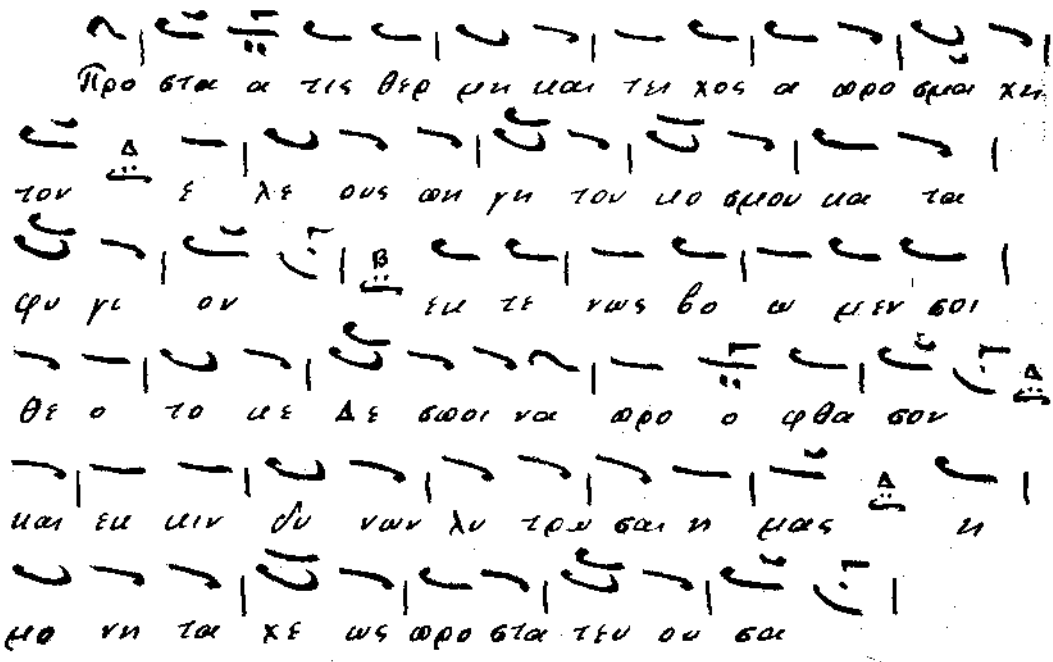 Προ στα α τις θερ μη και τει χος α προ σμα χη
τον Δ ε λε ους πη γη του κο σμου κα τα
φυ γι ον Β εκ τε νως βο ω μεν σοι
θε ο το κε Δε σποι να προ ο φθα σον Δ
και εκ κιν δυ νων λυ τρω σαι η μας Δ η
μο νη τα χε ως προ στα τευ ου σα